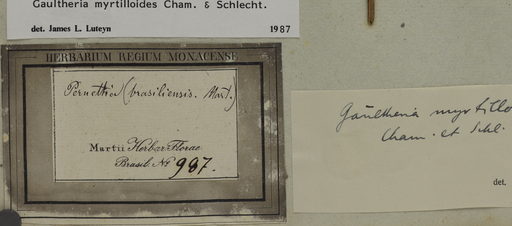 Gaultheria myrtilloides Cham. & Schlecht.
det. James L. Luteyn 1987
HERBARIUM REGIUM MONACENSE
Pernettia (brasiliensis. Mart.)
Martii Herbar. Florae
Brasil. No 987.
Gaultheria myrtillo
Cham. et Schl.
det.